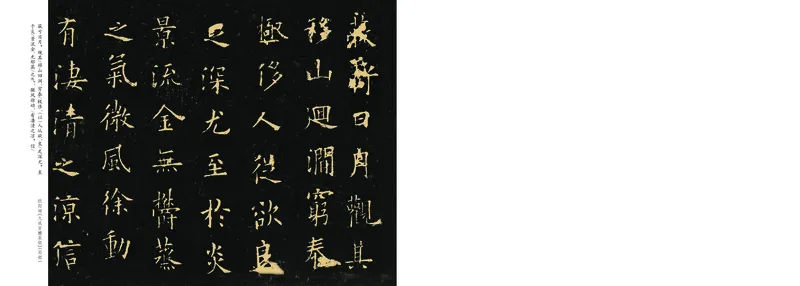 蔽虧日月觀其
移山迴澗窮泰
極侈人從欲良
足深尤至於炎
景流金無欝蒸
之氣微風徐動
有淒清之涼信